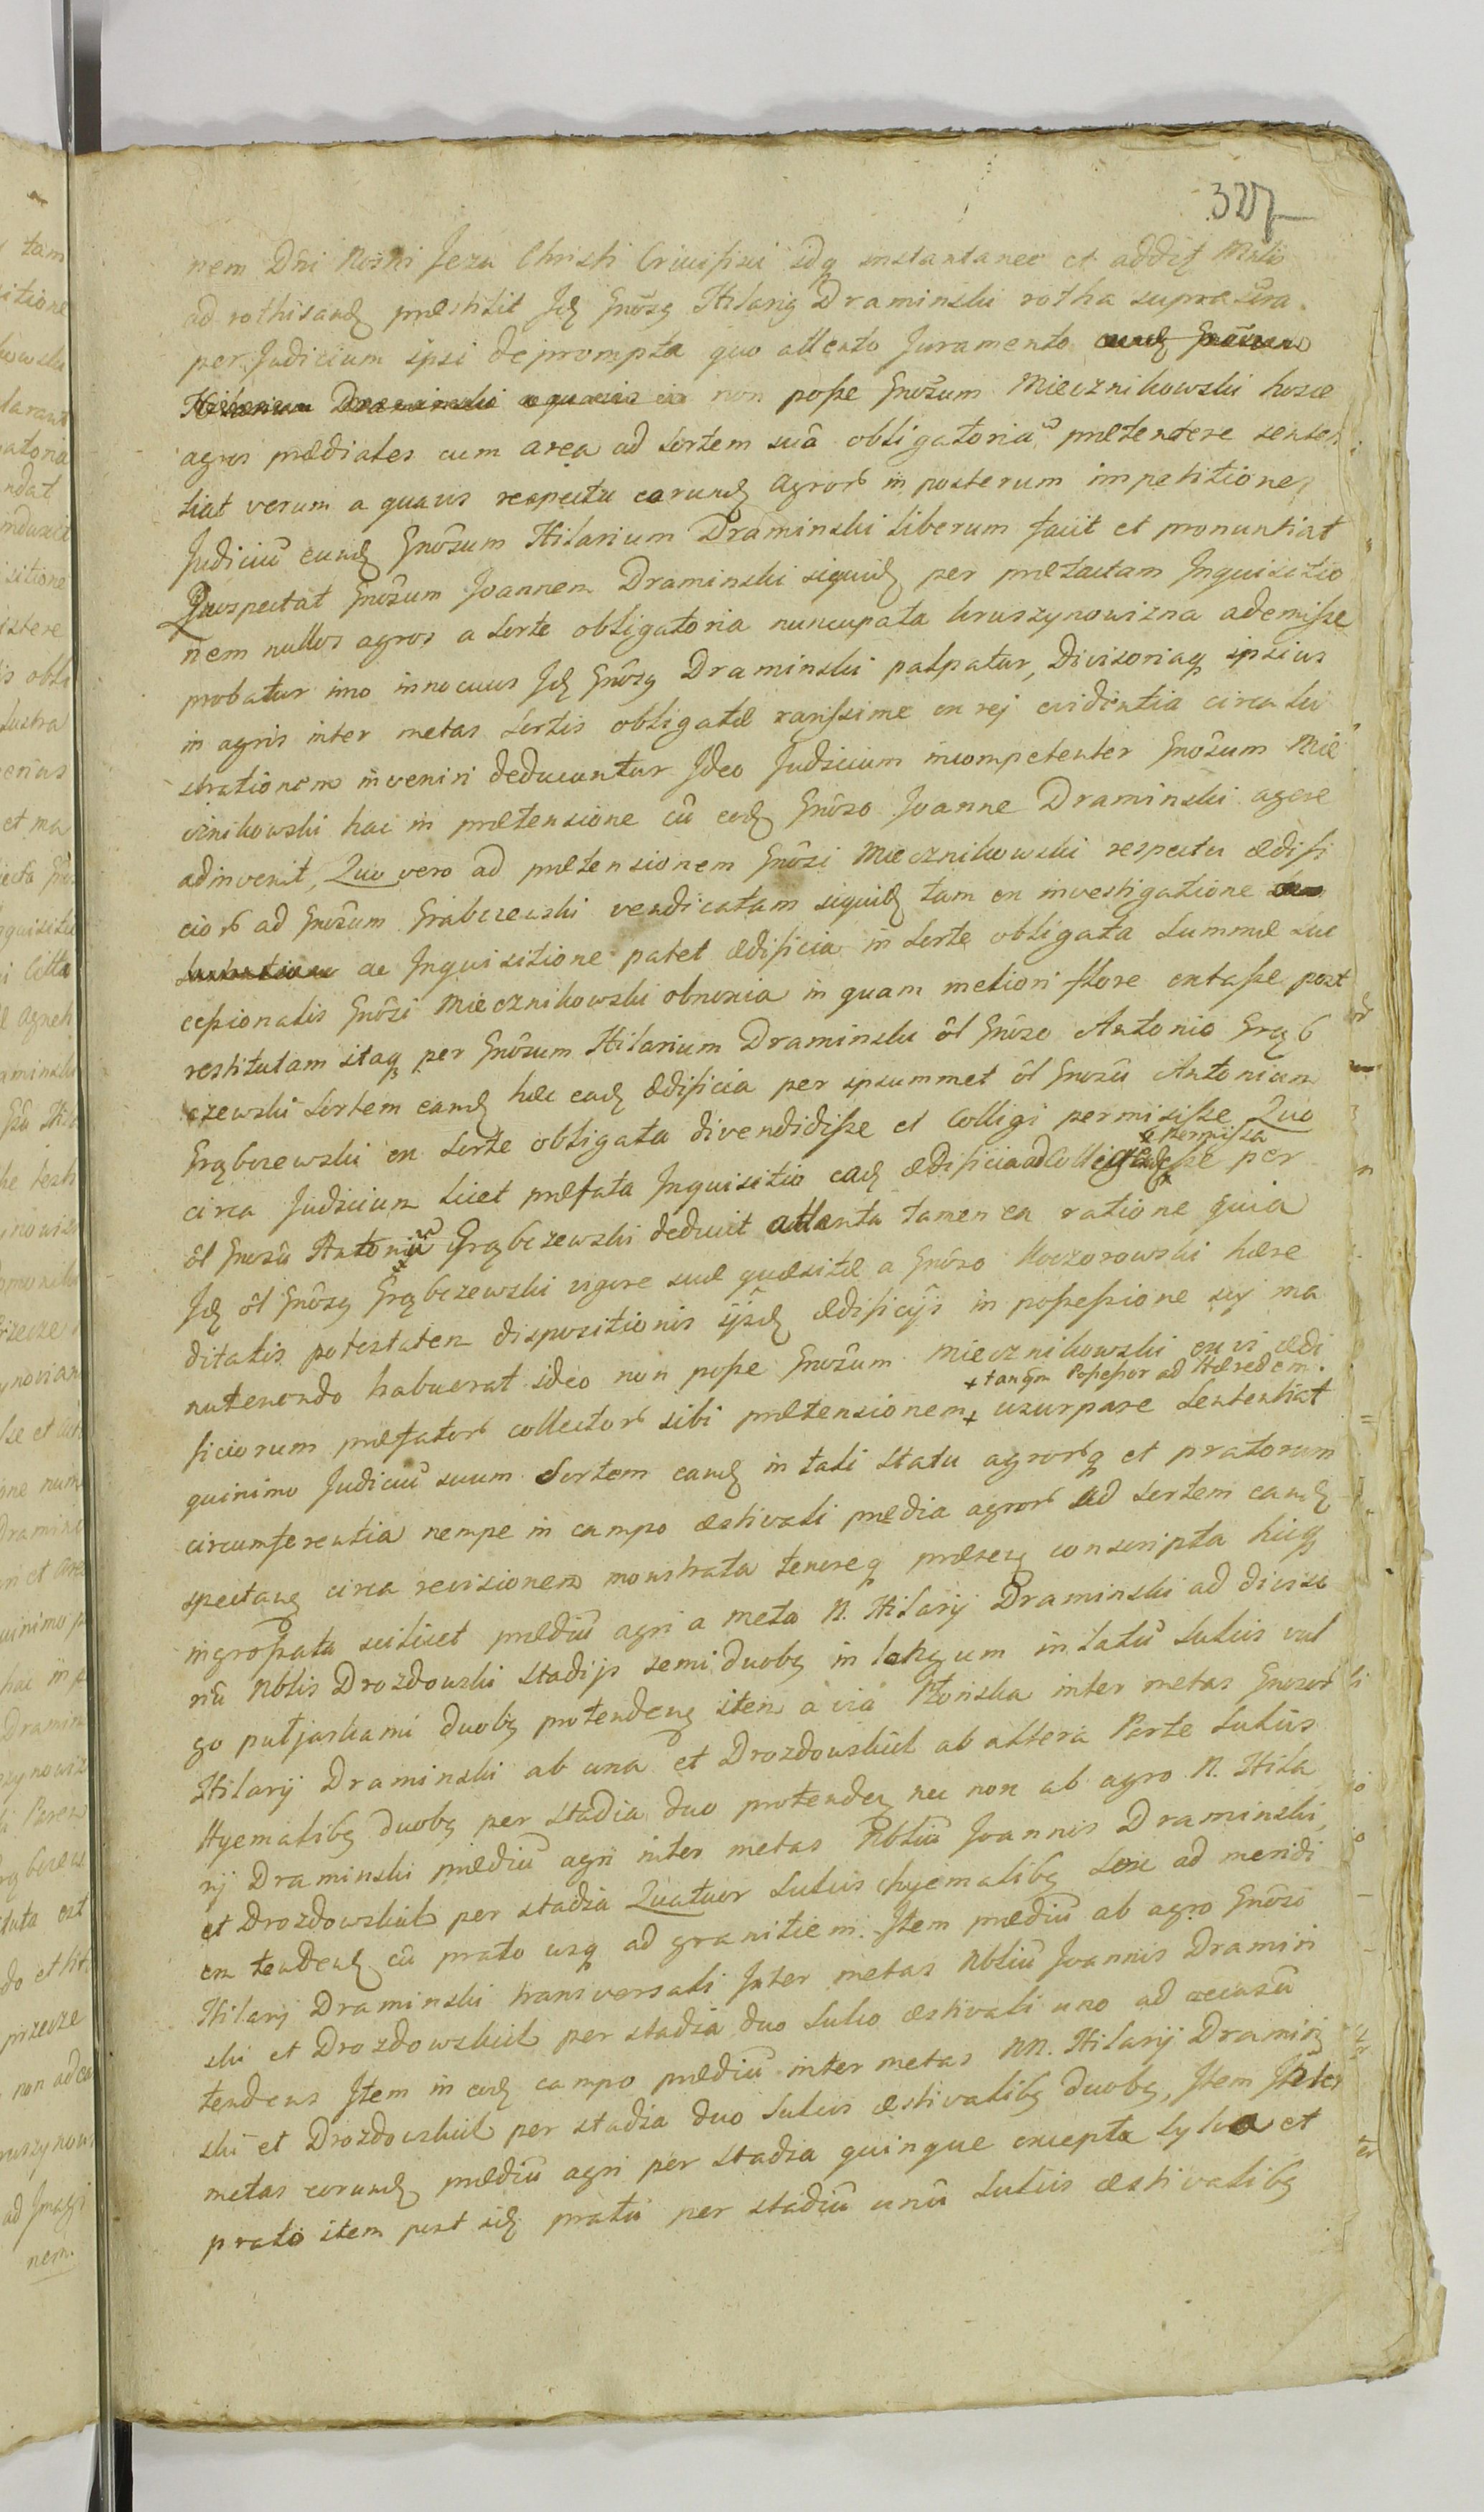 327
nem Dni Nostri Jezu Christi Crucifixi idq instantanee et addit
ad rothisand præstitit Jd Gnosq Hilariq Draminski rotha supra
per Judicium ipsi deprompta quo attento Juramento eund Gnosum
Hilarium Draminski a quavis non posse Gnosum Miecznikowski hosce
agros prædiales cum area ad sortem suâ obligatoria prætendere senten
tiat verum a quavis respectu eorund agror in posterum impetitione
Judiciu eund Gnosum Hilarium Draminski liberum facit et pronuntiat
Quospectat Gnosum Joannem Draminski siquid per prætactam Inquisitio
nem nullos agros a sorte obligatoria nuncupata kruszynowizna ademisse
probatur imo innocuus Jd Gnosq Draminski palpatur, Divisoriaq ipsius
in agris inter metas sortis obligatæ rarissime ex rej evidentia circa lu
strationem inveniri deducuntur Jdeo Judicium incompetenter Gnosum Mie
cznikowski hac in prætensione cû eod Gnoso Joanne Draminski agere
adinvenit, Quo vero ad prætensionem Gnosi Miecznikowski respectu ædifi
cior ad Gnosum Grąbczewski vendicatam siquid tam ex investigatione
ac Inquisitione patet ædificia in sorte obligata summæ suc
cessionalis Gnosi Miecznikowski obnoxia in quam meliori flore extasse post
restitutam itaq per Gnosum Hilarium Draminski ôl Gnoso Antonio Grąb
czewski sortem eand hæc ead ædificia per ipsummet ôl Gnosû Antonium
Grąbczewski ex sorte obligata divendidisse et Colligi permisisse Quo
circa Judicium licet præfata Inquisitio ead ædificia ad Colligend esse per
permissa
ôl Gnosû Antoniû Grąbczewski deducit attenta tamen ea ratione quia
Jd ôl Gnosq Grąbczewski vigore suæ quæsitæ a Gnoso Koczorowski hære
ditatis potestatem dispositionis ijsd ædificijs in possessione sui ma
nutenendo habuerat ideo non posse Gnosum Miecznikowski ex vi ædi
+ tanqm Possessor ad Hæredem.
ficiorum præfator collector sibi prætensionem + usurpare Sententiat
quinimo Judiciû suum Sortem eand in tali statu agrorq et pratorum
circumferentia nempe in campo æstivali prædia agror ad sortem eand
spectan circa revisionem monstrata tenoreq præsen conscripta hicq
ingrossata scilicet prædiû agri a meta N. Hilarij Draminski ad diviso
nû Nblis Drozdowski stadijs semi duobq in longum in latû sulcis vul
go putjarkami duobq protenden item a via Płońska inter metas Gnosor
Hilarij Draminski ab una et Drozdowskich ab altera Parte Sulcis
Hyemalibq duobq per stadia duo protenden nec non ab agro N. Hila
rij Draminski prædiû agri inter metas Nbliû Joannis Draminski,
et Drozdowskich per stadia Quatuor Sulcis hyemalibq sex ad meridi
em tendend cû prato usq ad granitiem. Item prædiû ab agro Gnosi
Hilarij Draminski transversali Inter metas Nbliû Joannis Dramin
ski et Drozdowskich per stadia duo sulco æstivali uno ad occasû
tendens Item in eod campo prædiû inter metas NN. Hilarij Dramin
ski et Drozdowskich per stadia duo Sulcis æstivalibq duobq, Item Inter
metas eorund prædiû agri per stadia quinque excepta Sylva et
prato item post id pratû per stadiû unû Sulcis æstivalibq